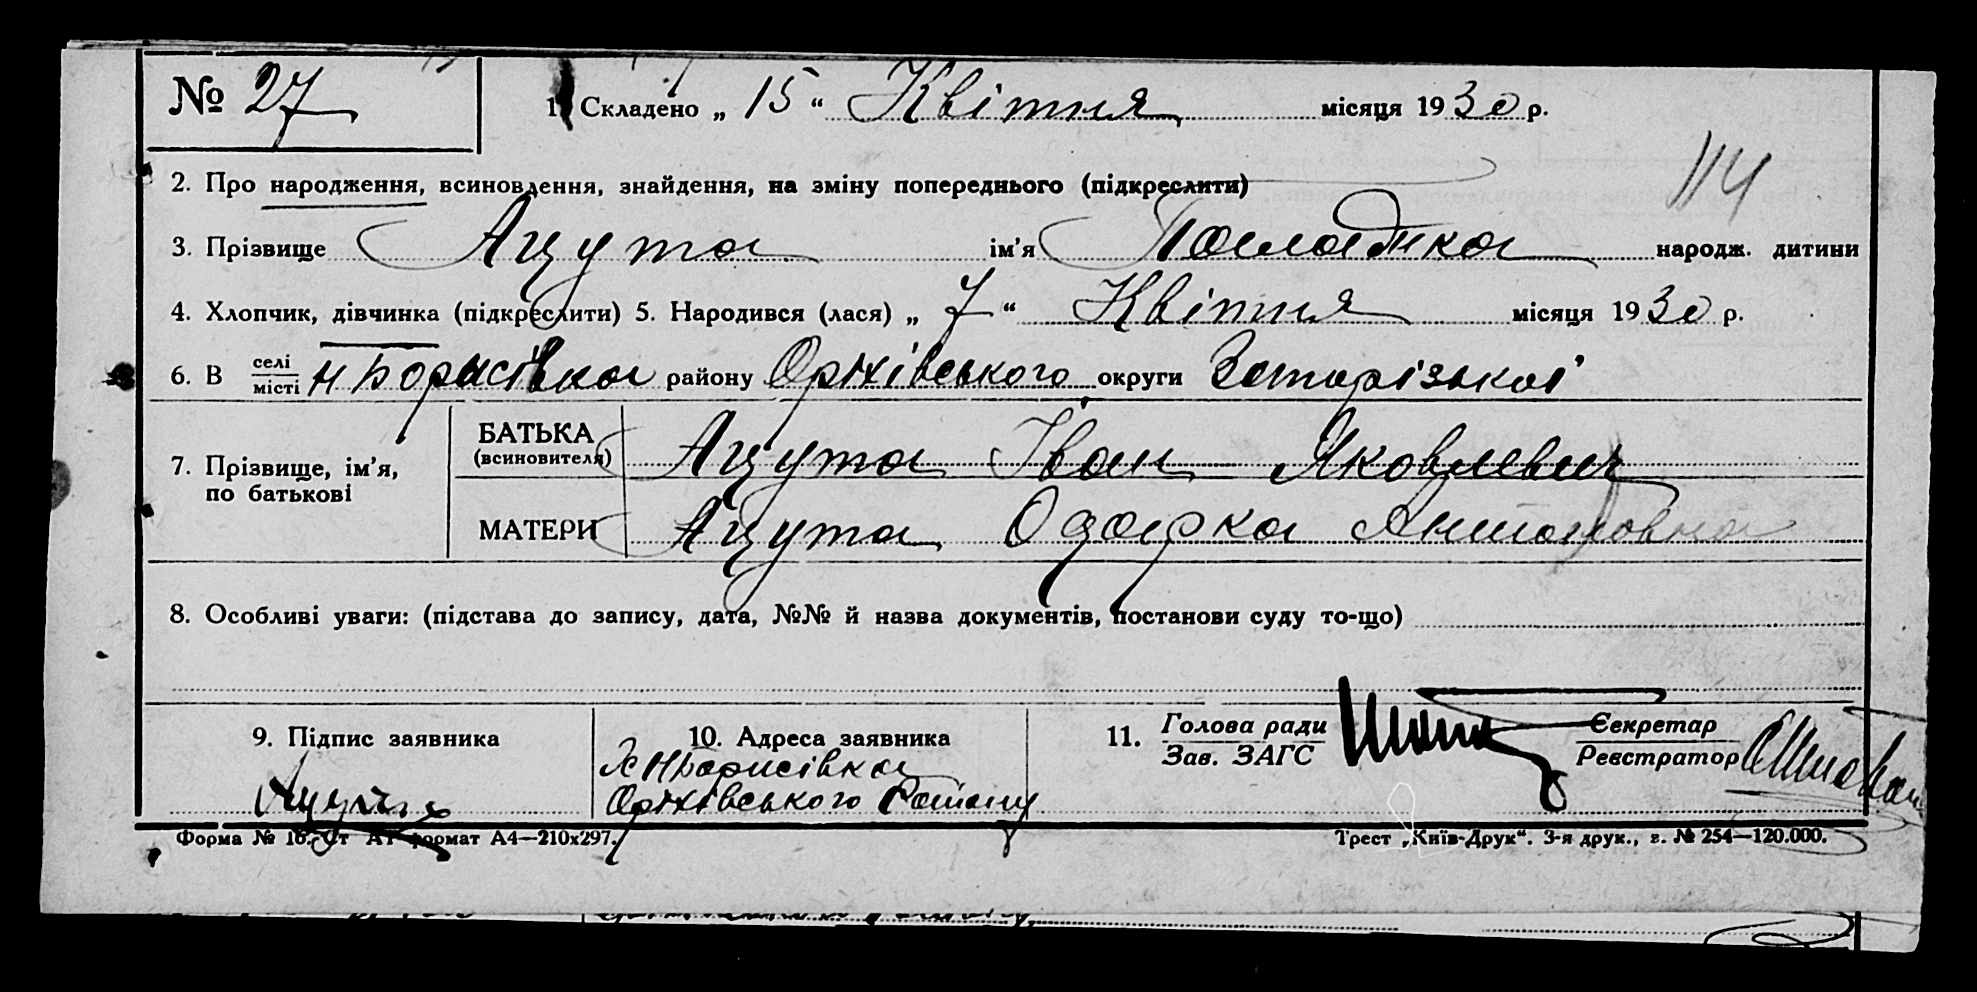 № 27 1. Складено „ 15 “ Квітня місяця 1930 р.
114
2. Про народження, всиновлення, знайдення, на зміну попереднього (підкреслити)
3. Прізвище Ацута ім'я народж. дитини
4. Хлопчик, дівчинка (підкреслити) 5. Народився (лася) „ 7 “ Квітня місяця 1930 р.
6. В селі/місті Н Борисівка району Оріхівського округи Запорізької
7. Прізвище, ім'я, по батькові
БАТЬКА (всиновителя) Ацута Іван Яковлевич
МАТЕРИ Ацута Одарка Антоновна
8. Особливі уваги: (підстава до запису, дата, №№ й назва документів, постанови суду то-що)
9. Підпис заявника
Ацута
10. Адреса заявника
Х Н Борисівка
Оріхівського Району
11. Голова ради
Зав. ЗАГС
Секретар
Реєстратор
Форма № 16. Ст А4 формат А4—210х297.
Трест „Київ-Друк“. 3-я друк., з. № 254—120.000.